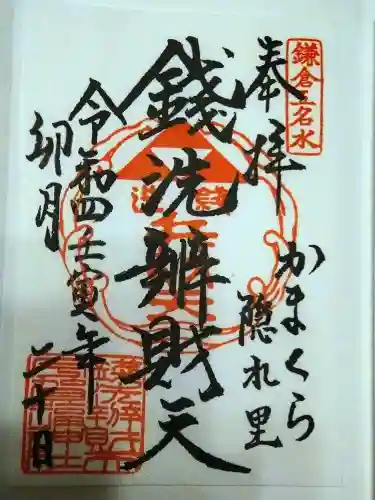 鎌倉五名水
奉拝
かまくら
隠れ里
銭洗辨財天
令和四壬寅年
卯月
二十日